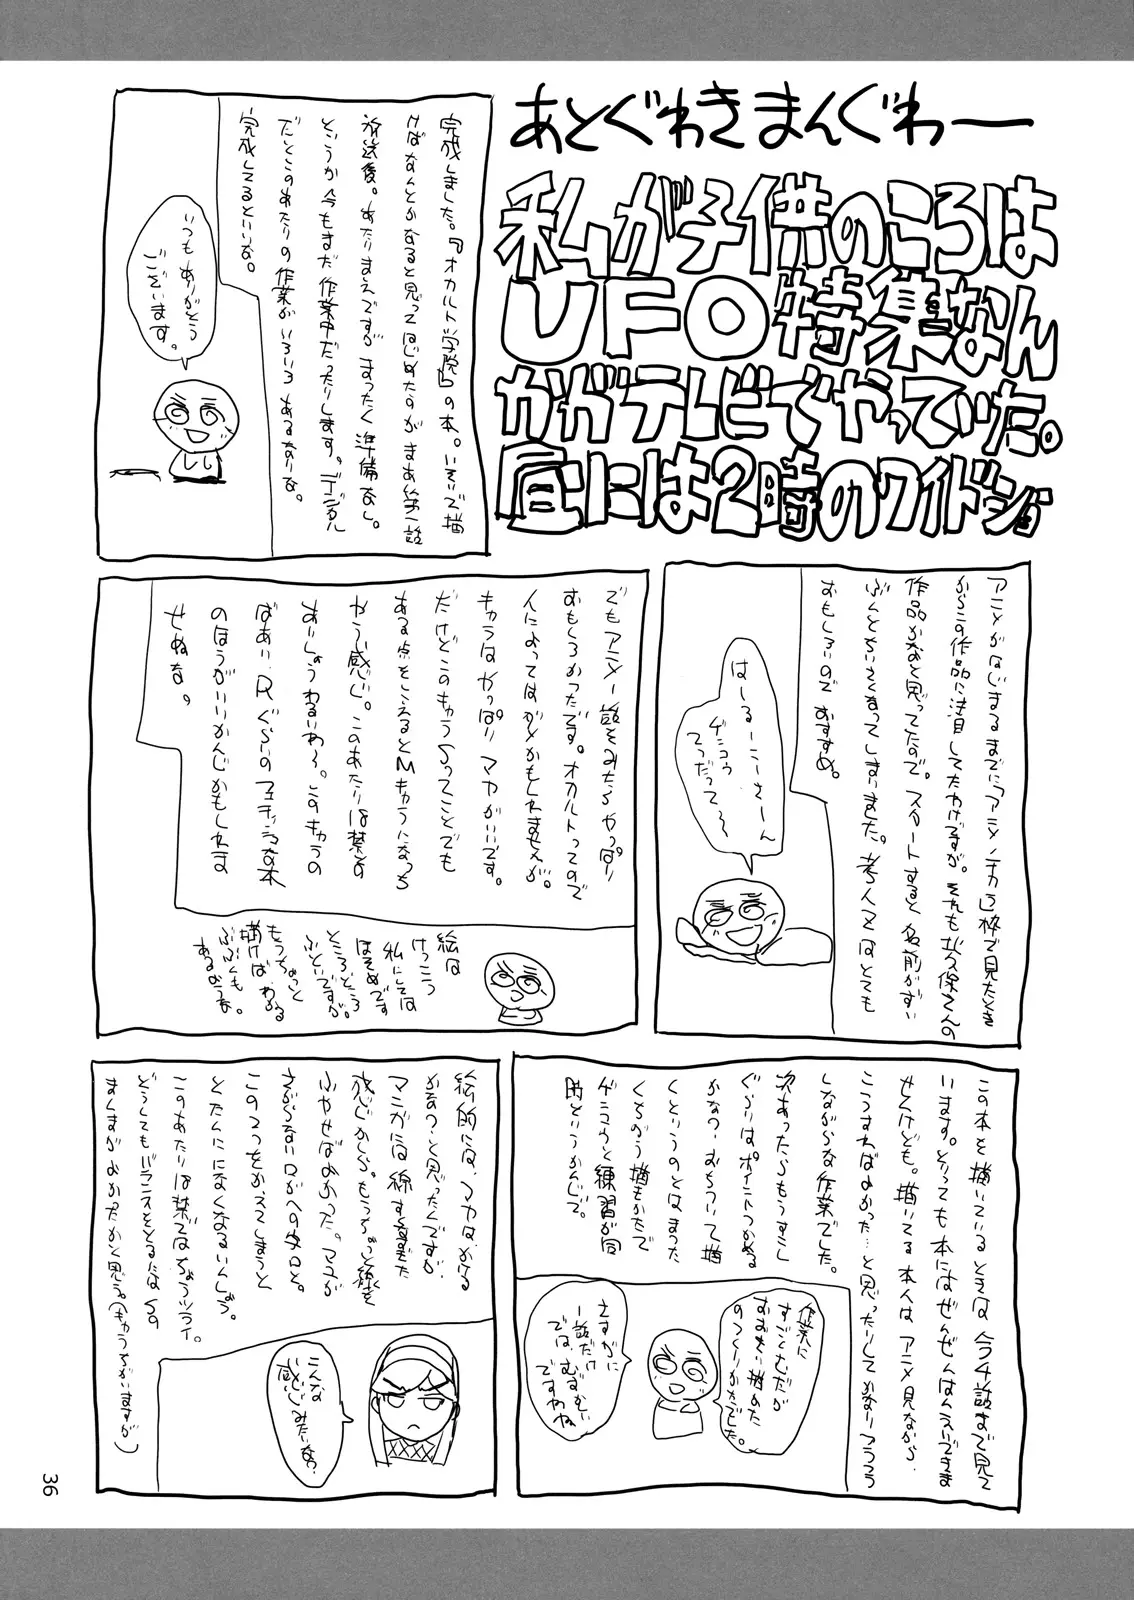 あとぐわきまんぐわー
私が子供のころは
UFO特集なん
かがテレビでやっていた。
昼には2時のワイドショ
完成しました。『オカルト学院』の本。いそいで描
けばなんとかなると思ってはじめたのがまあ第一話
放送後。あたりまえですがまったく準備なし。
というか今もまだ作業中だったりします。デジタル
だとこのあたりの作業がいろいろあるなりな。
完成してるといいな。
いつもありがとう
ございます。
アニメがはじまるまでに「アニメノチカラ」枠で見たとき
からこの作品に注目してたわけですが。それも
作品かなと思ってたので。スタートすると名前がずい
ぶんとちいさくなってしまいました。
おもしろいのでおすすめ。
はーるーこーさーん
ゲンコウ
てつだって〜
でもアニメ一話をみたらやっぱり
おもしろかったです。オカルトってので
人によってはダメかもしれませんが。
キャラはやっぱりマヤがいいです。
だけどこのキャラSってことでも
ある点をこえるとMキャラになっち
ゃう感じ。このあたりは
あいしょうわるいわ〜。このキャラの
ばあい、Rぐらいのフェチッシュな本
のほうがいいかんじかもしれま
せぬな。
絵は
けっこう
私にしては
ほそめです
ところどころ
ふといですが。
もうちょっと
描けばわかる
ぶぶんも
あるかもな。
この本を描いているときは今4話まで見て
います。とっても本にはぜんぜんはんえいできま
せんけども。描いてる本人はアニメ見ながら、
こうすればよかった…と思ったりしてかなりフラフラ
しながらな作業でした。
次あったらもうすこし
ぐらいはポイントつかめる
かなつ。おちついて描
くというのとはまった
くちがう描きかたで
ゲンコウと練習が同
時というかんじで。
作業に
すごくむだが
おおきい描めた
のつくりかたでした。
さすがに
一話だけ
ではむずかしい
ですわね
絵的には、マヤはいける
かなの?と思ったんですが
マンガには線すくなすぎた
感じかしら。もうちょっと線を
ふやせばよかった。マユが
さがらないロがへの字口と。
この2つをかえてしまうと
とたんにになくなるいんしょう。
このあたりは禁ではちょうツライ。
どうしてもバランスをとるには
まんまがよかったかと思う。(もうちがいますが)
こんな
感じみたいな?
36